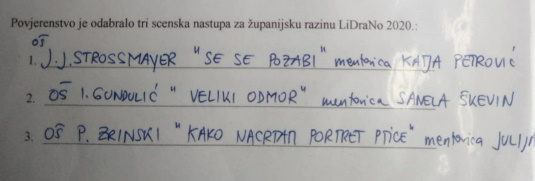 Povjerenstvo je odabralo tri scenska nastupa za županijsku razinu LiDraNo 2020.:
OŠ
1. J.J. STROSSMAYER "SE SE POZABI" mentorica KATJA PETROVIĆ
2. OŠ I. GUNDULIĆ "VELIKI ODMOR" mentorica SANELA ŠKEVIN
3. OŠ P. ZRINSKI "KAKO NACRTATI PORTRET PTICE" mentorica